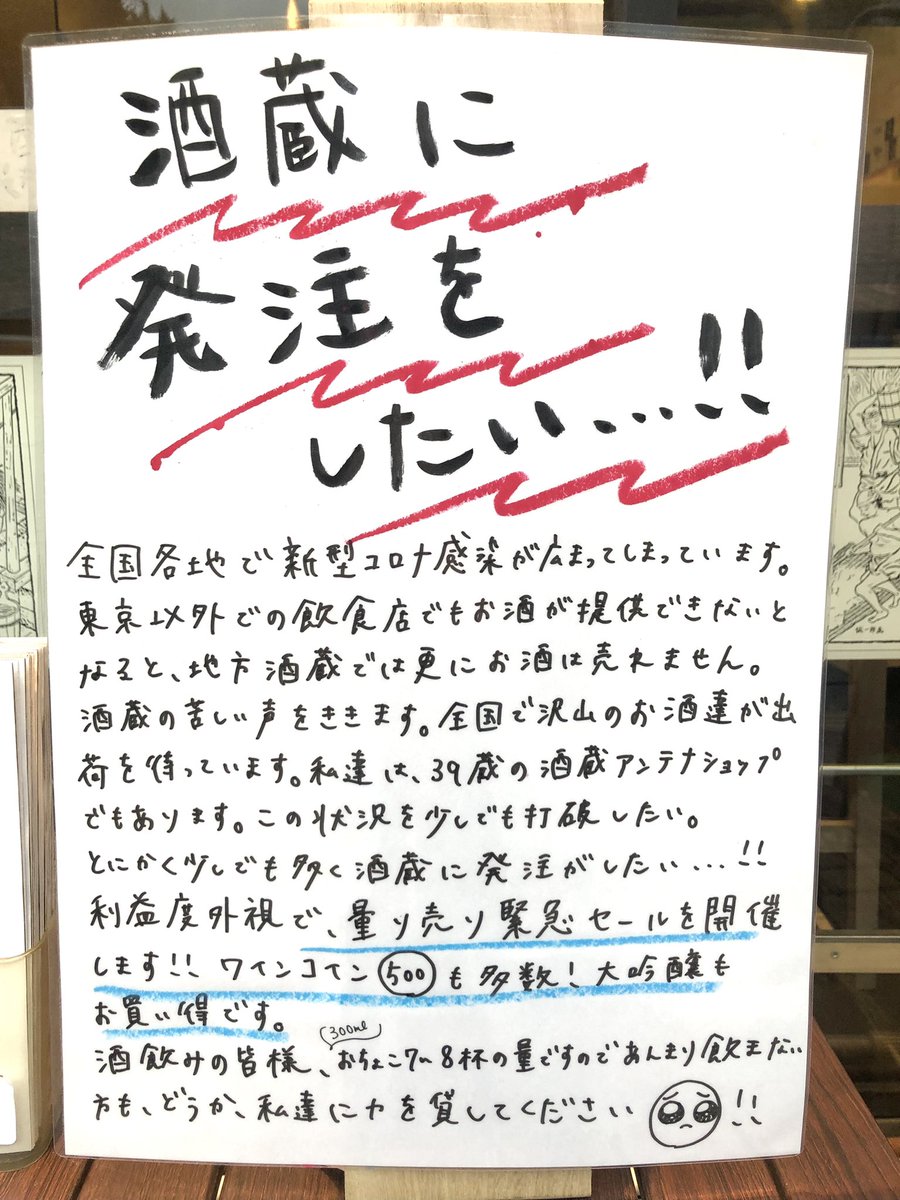 酒蔵に
発注を
したい...!!
全国各地で新型コロナ感染が広まってしまっています。
東京以外での飲食店でもお酒が提供できないと
なると、地方酒蔵では更にお酒は売れません。
酒蔵の苦しい声をききます。全国で沢山のお酒達が出
荷を待っています。私達は、39蔵の酒蔵アンテナショップ
でもあります。この状況を少しでも打破したい。
とにかく少しでも多く酒蔵に発注がしたい...!!
利益度外視で、量り売り緊急セールを開催
します!!ワインコイン500も多数!大吟醸も
お買い得です。
300ml
酒飲みの皆様、おちょこ7〜8杯の量ですのであんまり飲まない
方も、どうか、私達に力を貸してください!!